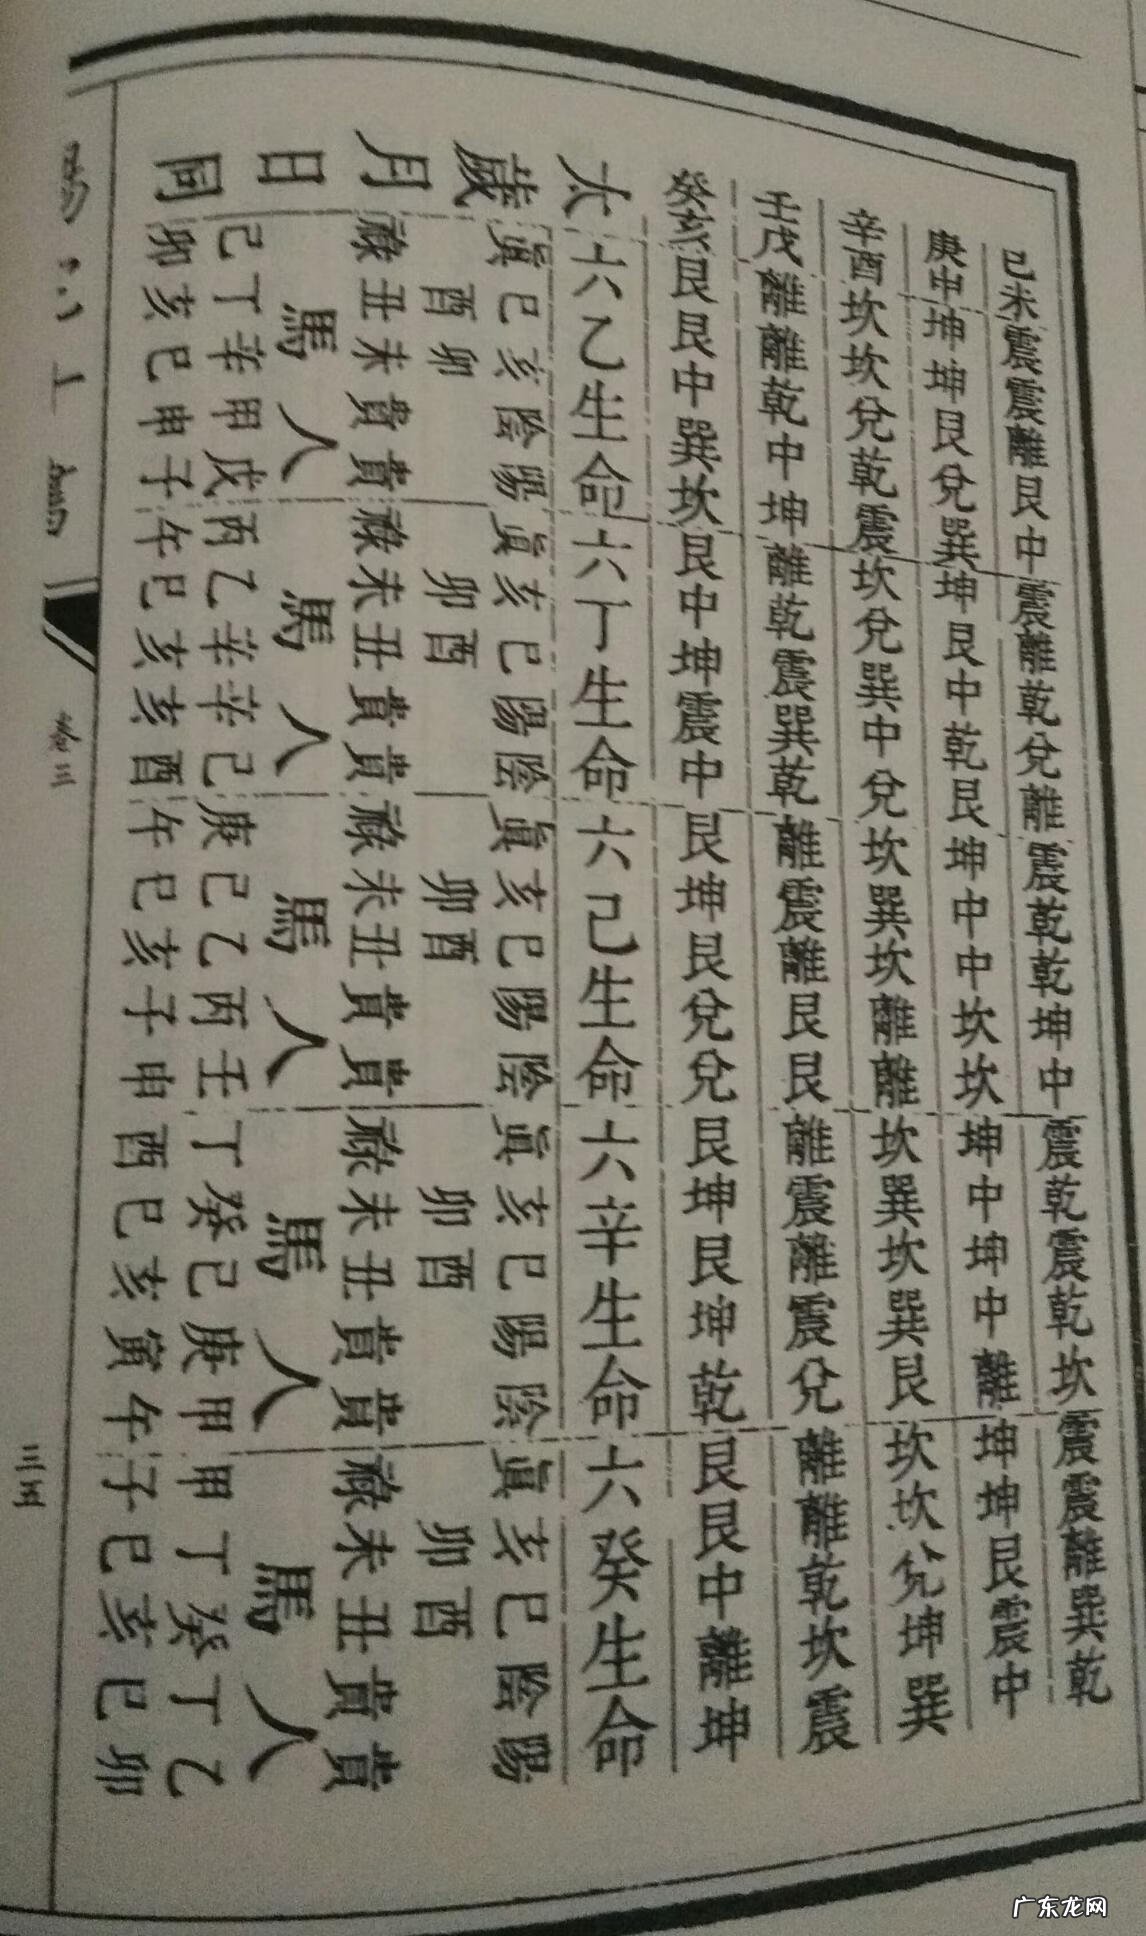 己未震震離艮中震離乾兌離震乾乾坤中震乾震乾坎震震離巽乾
庚申坤坤艮兌巽坤艮中乾艮坤中中坎坎坤中坤中離坤坤艮震中
辛酉坎坎兌乾震坎兌巽中兌坎巽坎離離坎巽坎巽艮坎坎兌坤巽
壬戌離離乾中坤離乾震巽乾離震離艮艮離震離震兌離離乾坎震
癸亥艮艮中巽坎艮中坤震中艮坤艮兌兌艮坤艮坤乾艮艮中離坤
太六乙生命六丁生命六己生命六辛生命六癸生命
歲眞巳亥陰陽眞亥巳陽陰眞亥巳陽陰眞亥巳陽陰眞亥巳陰陽
酉卯卯酉卯酉卯酉卯酉
月祿丑未貴貴祿未丑貴貴祿未丑貴貴祿未丑貴貴祿未丑貴貴
日馬人馬人馬人馬人馬人
己丁辛甲戊丙乙辛辛己庚己乙丙壬丁癸己庚甲甲丁癸丁乙
同卯亥巳申子午巳亥亥酉午巳亥子申酉巳亥寅午子巳亥巳卯
卷三
三五
广东龙网